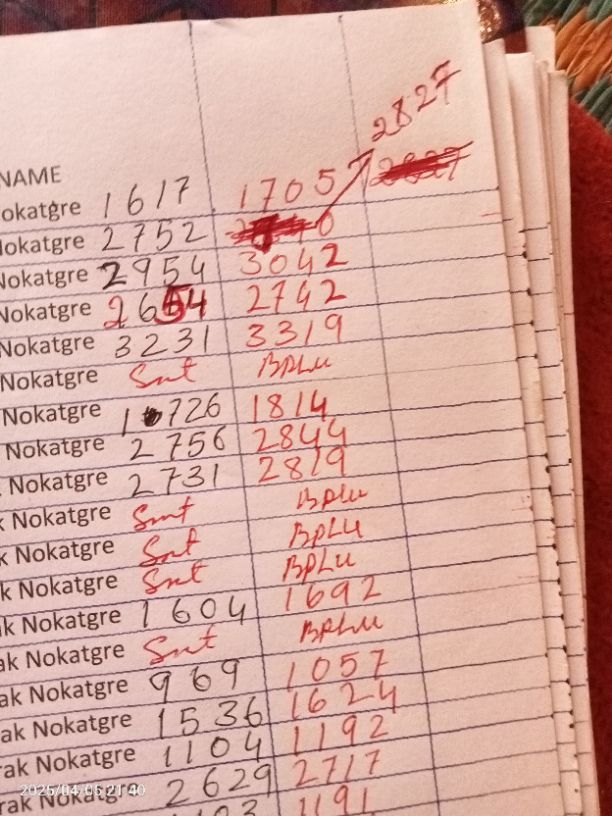 2827
NAME
okatgre 1617 1705
Nokatgre 2752
Nokatgre 2954 3042
Nokatgre 2654 2742
Nokatgre 3231 3319
Nokatgre Smt BPLU
Nokatgre 1726 1814
Nokatgre 2756 2844
k Nokatgre 2731 2819
k Nokatgre Smt BPLU
k Nokatgre Smt BPLU
k Nokatgre Smt BPLU
ak Nokatgre 1604 1692
ak Nokatgre Smt BPLU
ak Nokatgre 969 1057
ak Nokatgre 1536 1624
rak Nokatgre 1104 1192
rak Nokatgre 2629 2717
1191
2025/04/05 21:40